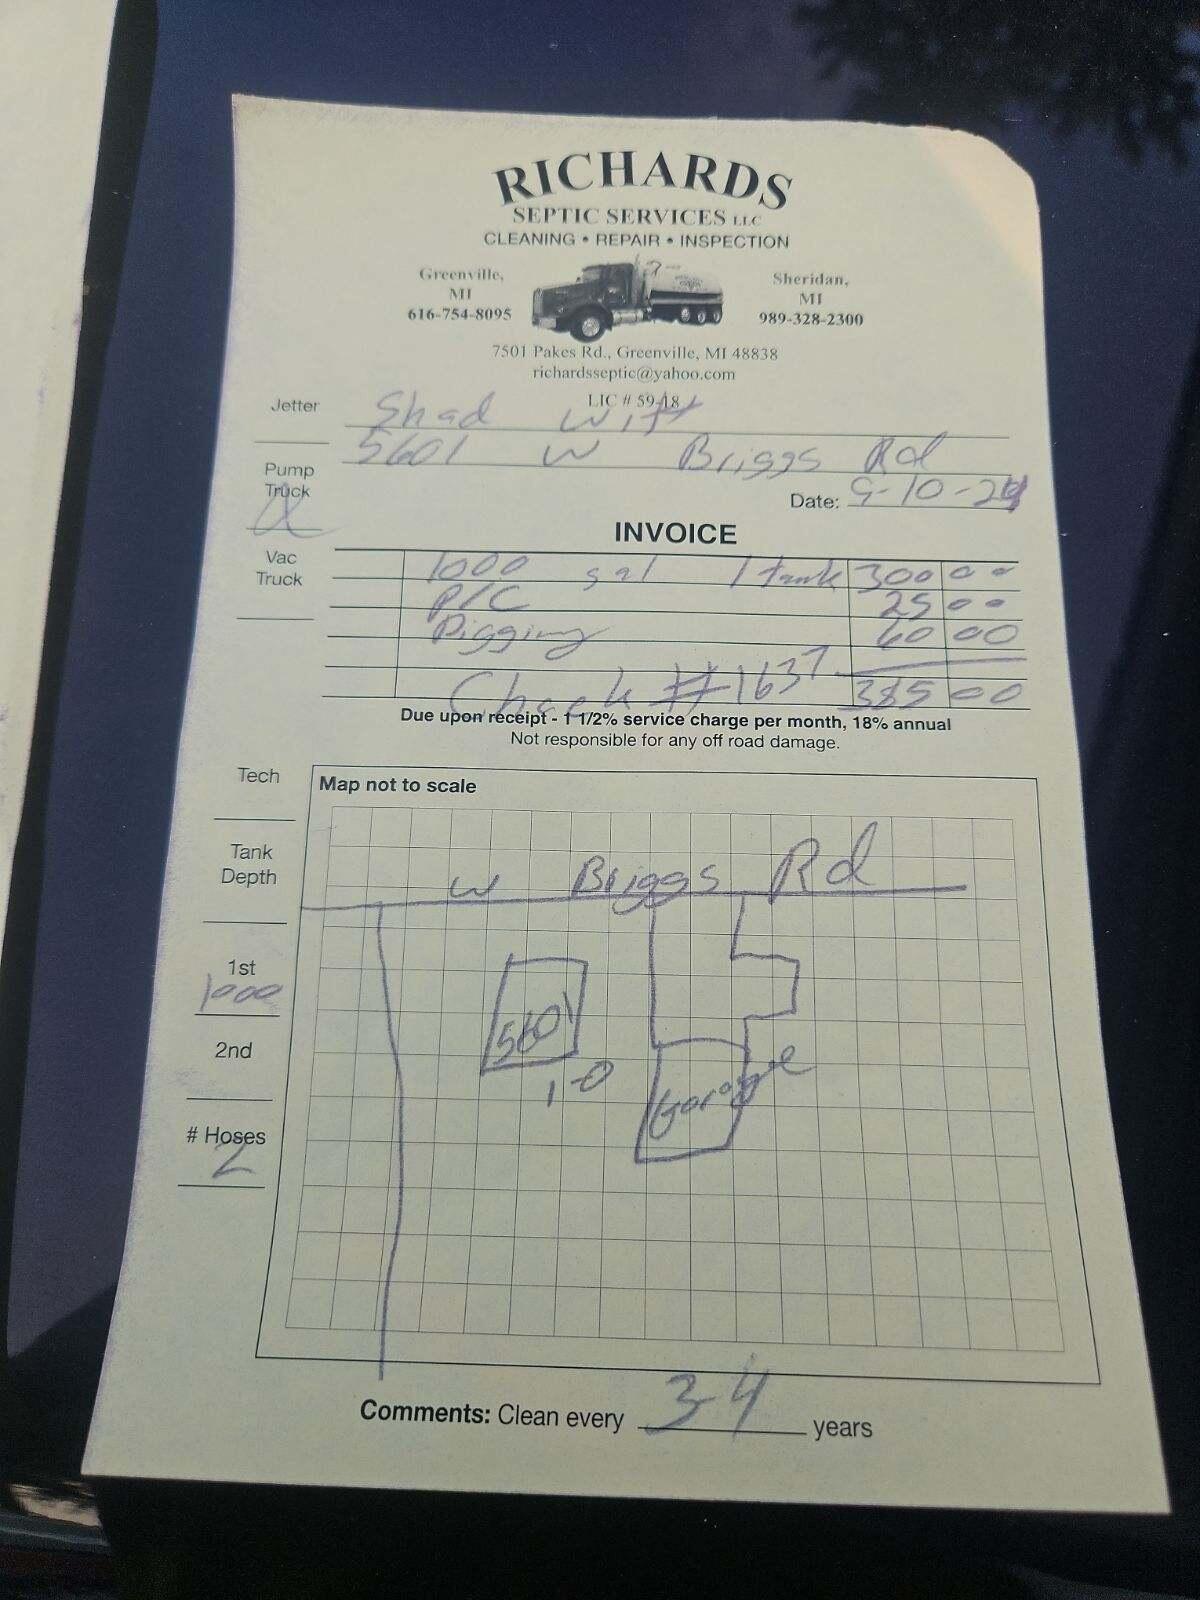 RICHARDS
SEPTIC SERVICES LLC
CLEANING • REPAIR • INSPECTION
Greenville,
MI
616-754-8095
Sheridan,
MI
989-328-2300
7501 Pakes Rd., Greenville, MI 48838
richardsseptic@yahoo.com
LIC # 59-18
Jetter
Shad Witt
5601 W Briggs Rd
Pump
Truck
Date: 9-10-24
INVOICE
Vac
Truck
1000 gal 1 tank 300 00
P/C 25 00
Digging 60 00
Check #1637 385 00
Due upon receipt - 1 1/2% service charge per month, 18% annual
Not responsible for any off road damage.
Tech
Map not to scale
Tank
Depth
W Briggs Rd
1st
1000
5601
2nd
1-0
Garage
# Hoses
2
Comments: Clean every 3-4 years